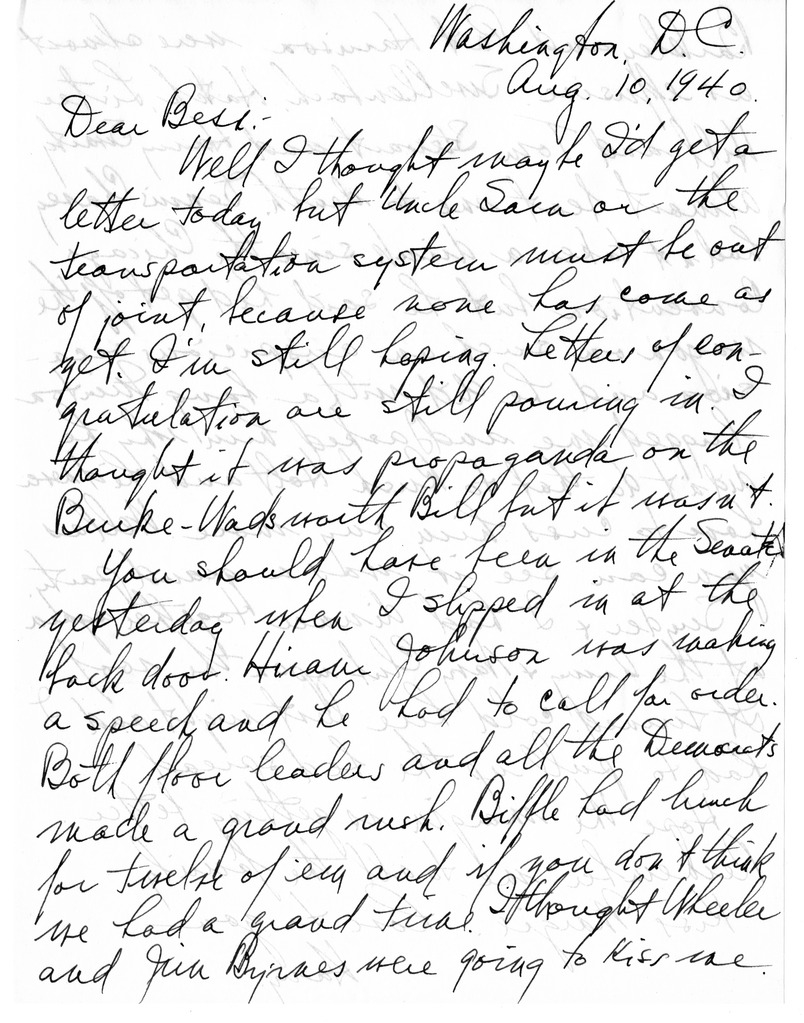 Washington, D.C.
Aug. 10, 1940.
Dear Bess:-
Well I thought maybe I'd get a
letter today but Uncle Sam or the
transportation system must be out
of joint, because none has come as
yet. I'm still hoping. Letters of con-
gratulation are still pouring in. I
thought it was propaganda on the
Burke-Wadsworth Bill but it wasn't.
You should have been in the Senate
yesterday when I slipped in at the
back door. Hiram Johnson was making
a speech and he had to call for order.
Both floor leaders and all the Democrats
made a grand rush. Biffle had lunch
for twelve of 'em and if you don't think
we had a grand time. I thought Wheeler
and Jim Byrnes were going to kiss me.